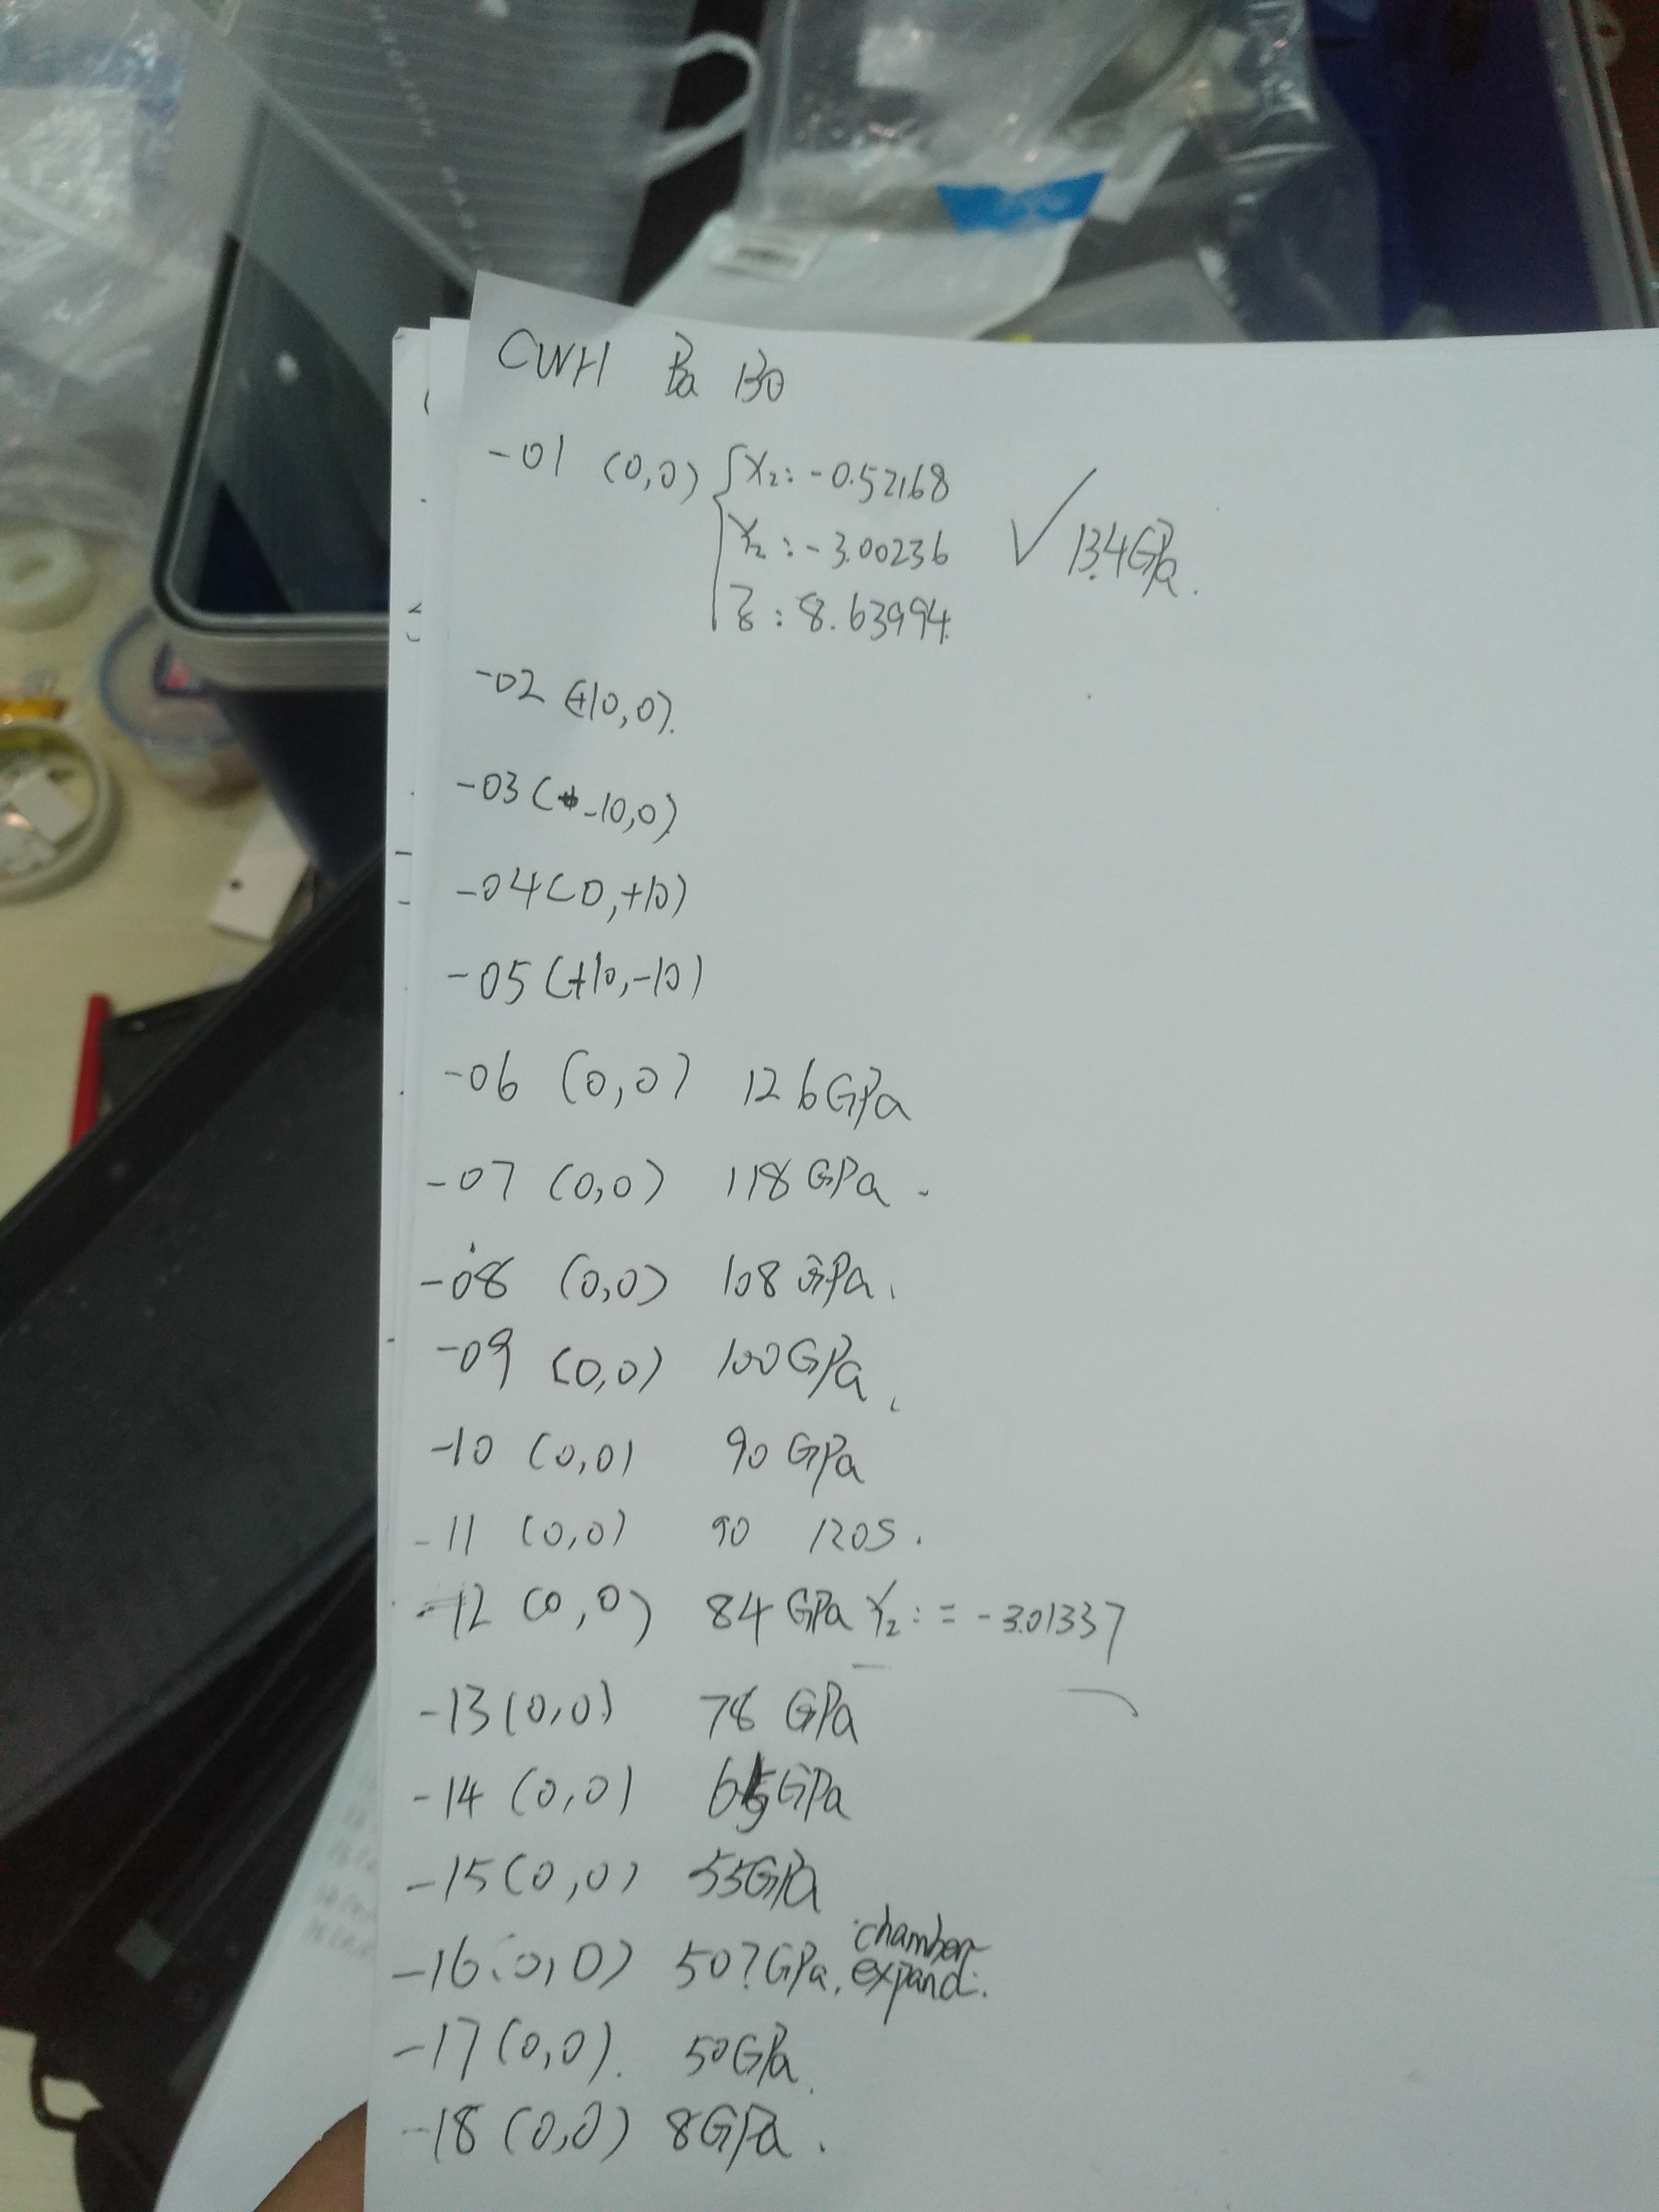 CWH Ba 130
-01 (0,0) { X₂: -0.52168
Y₂: -3.00236 ✓ 134GPa.
Z: 8.63994
-02 (+10,0).
-03 (-10,0)
-04 (0,+10)
-05 (+10,-10)
-06 (0,0) 126GPa
-07 (0,0) 118GPa.
-08 (0,0) 108GPa.
-09 (0,0) 100GPa.
-10 (0,0) 90GPa
-11 (0,0) 90 120S.
-12 (0,0) 84GPa Y₂: = -3.01337
-13 (0,0) 78 GPa
-14 (0,0) 65GPa
-15 (0,0) 55GPa
-16 (0,0) 50?GPa. chamber
expand.
-17 (0,0). 50GPa.
-18 (0,0) 8GPa.